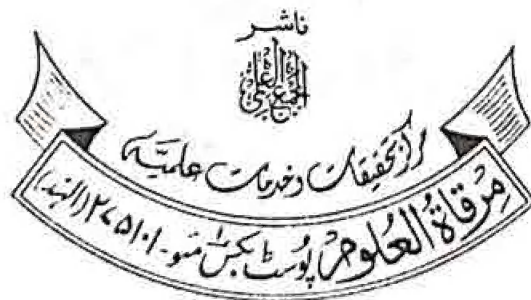 ناشر
المجمع العلمی
مرکز تحقیقات و خدمات علمیہ
مرقاۃ العلوم پوسٹ بکس ۱ مئو - ۲۷۵۱۰۱ (الہند)